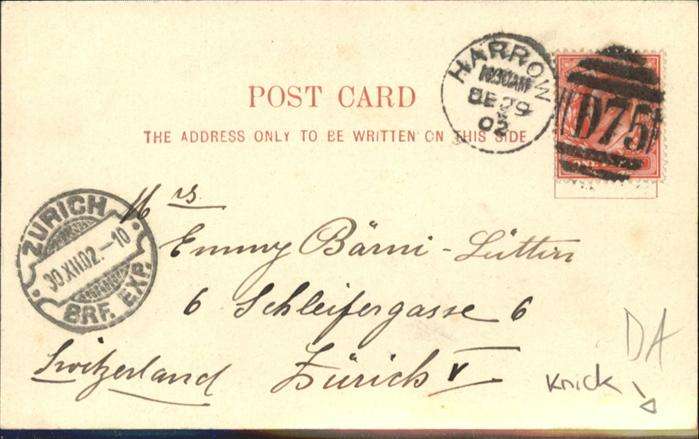 HARROW
10.30AM
DE 29
02
D75
ONE
POST CARD
THE ADDRESS ONLY TO BE WRITTEN ON THIS SIDE
ZÜRICH
30.XII.02.-10
BRF. EXP.
Mrs
Emmy Bärni-Lütti
6 Schleifergasse 6
Switzerland Zürich V
DA
Knick